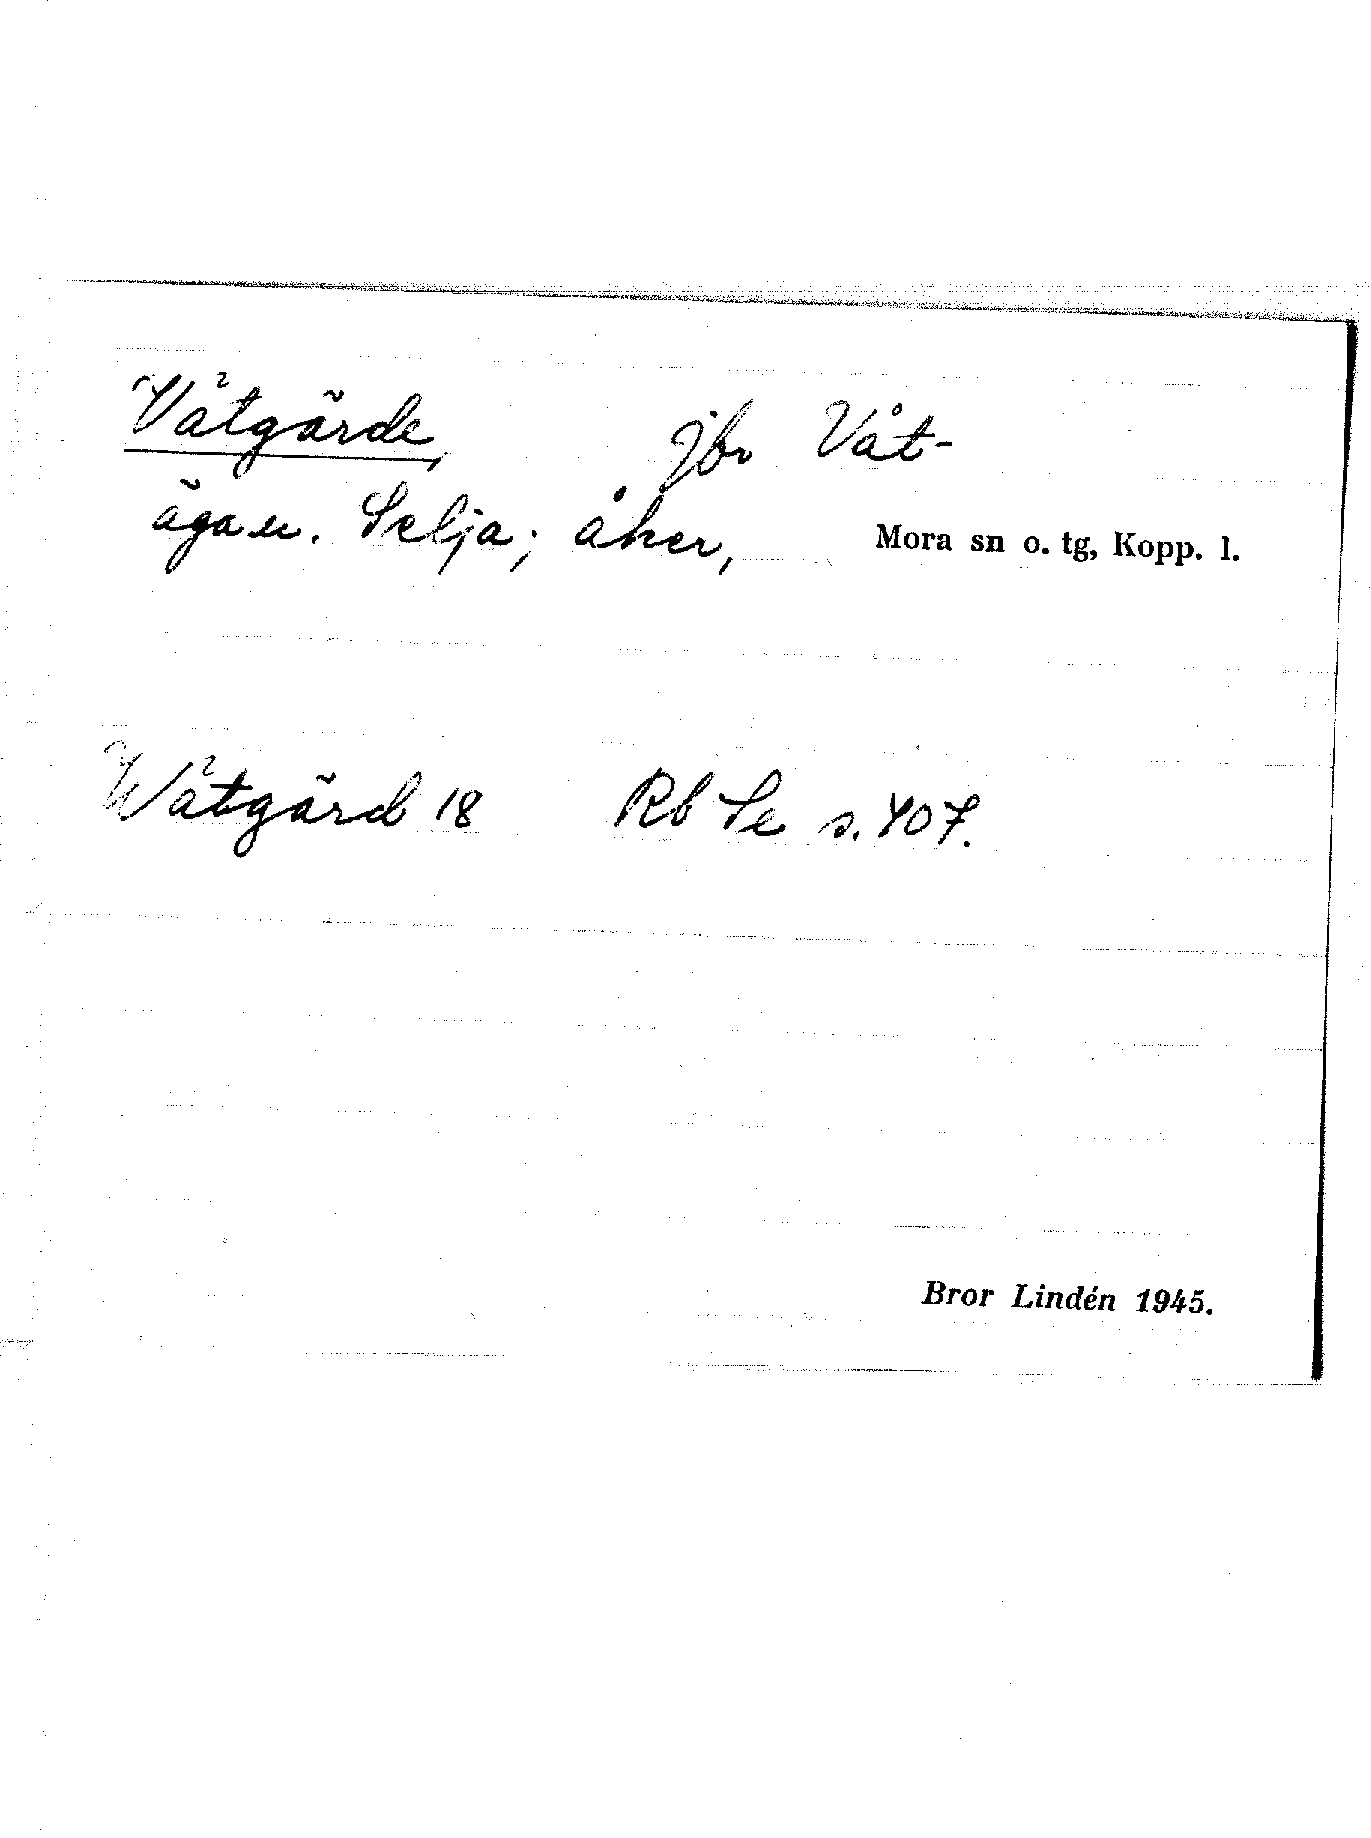 Våtgärde, jbr Våt-
ägan. Selja; åker, Mora sn o. tg, Kopp. l.
Wåtgärd 18 Rb Se s. 407.
Bror Lindén 1945.